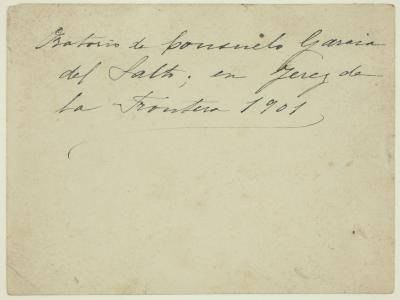 Oratorio de Consuelo Garcia
del Salto; en Jerez de
la Frontera 1901